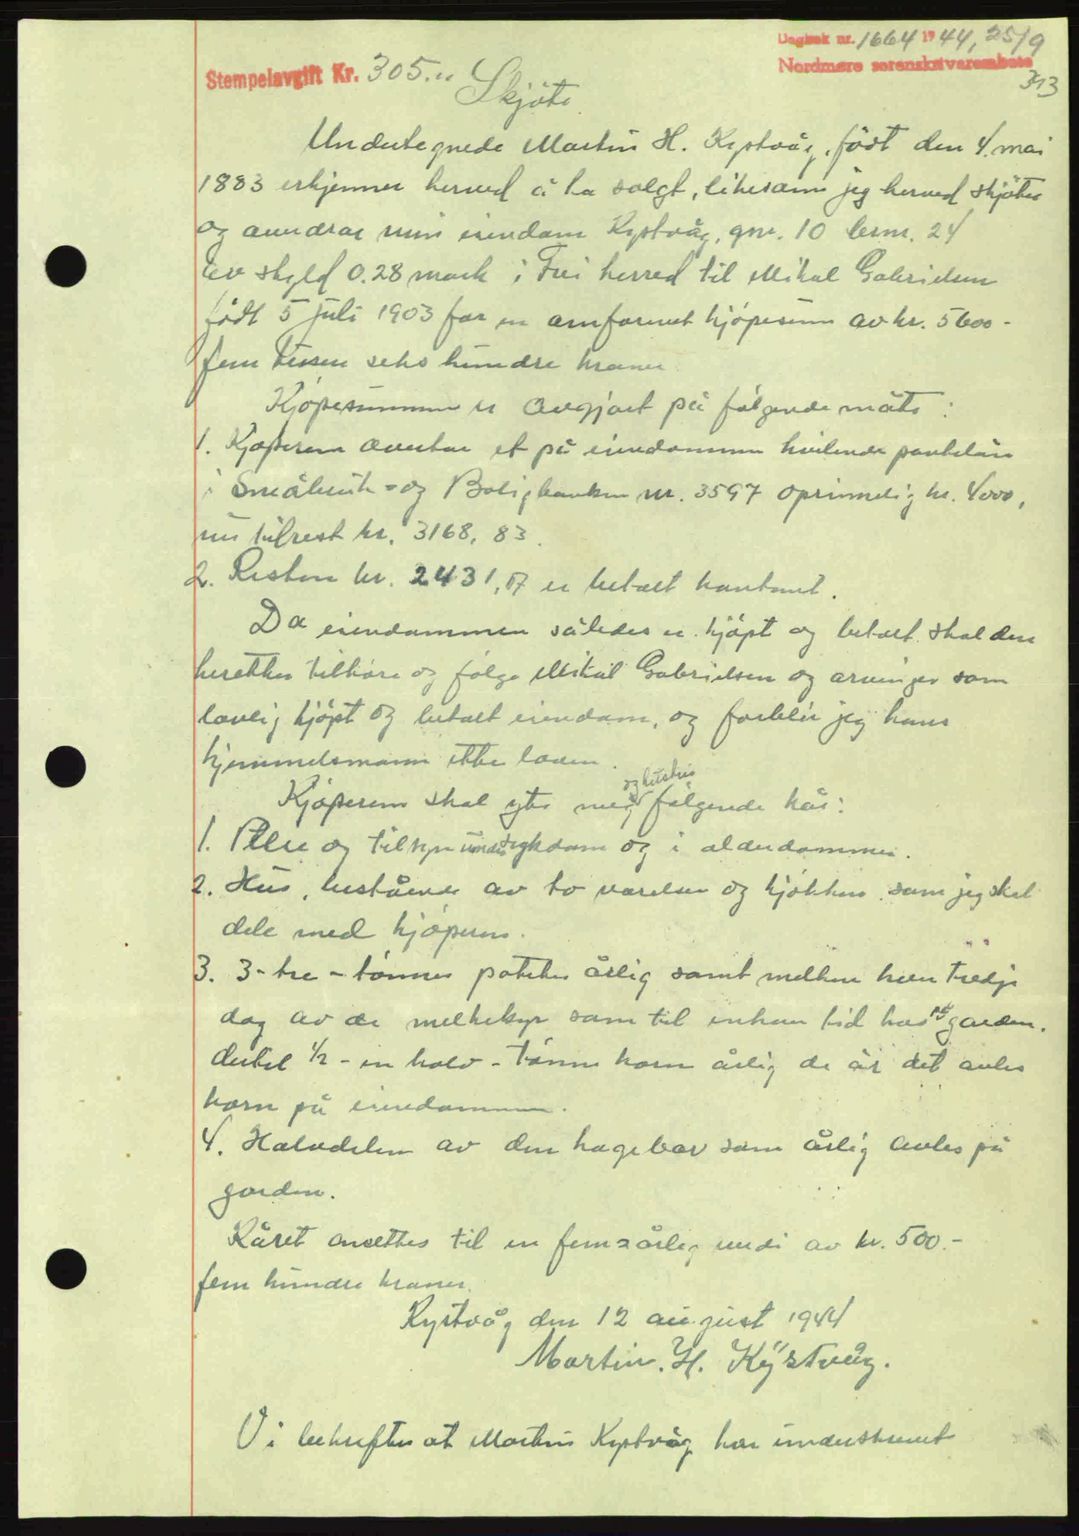 Dagbok nr. 1664 1944, 25/9
Nordmøre sorenskriverembete
313
Stempelavgift Kr. 305.-
Skjöte.
Undertegnede Martin H. Kystvåg, född den 4. mai
1883 erkjenner herved å ha solgt, likesom jeg herved skjöter
og avendrar min eiendom Kystvåg, gnr. 10 brnr. 24
av skyld 0.28 mark i Frei herred til Mikal Gabrielsen
födt 5 juli 1903 for en omforenet kjöpesum av kr. 5600-
fem tusen seks hundre kroner
Kjöpesummen er avgjort på fölgende måte:
1. Kjöperen overtar et på eiendommen hvilende pantelån
i Småbruk- og Boligbanken nr. 3597 oprinnelig kr. 4000,
nu tilrest kr. 3168,83.
2. Resten kr. 2431,17 er betalt kontant.
Da eiendommen således er kjöpt og betalt skal den
heretter tilhöre og fölge Mikal Gabrielsen og arvinger som
lovlig kjöpt og betalt eiendom, og forblir jeg hans
hjemmelsmann etter loven.
Kjöperen skal yte meg og hustru fölgende kår:
1. Pleie og tilsyn under sykdom og i alderdommen.
2. Hus, bestående av to værelser og kjökken som jeg skal
dele med kjöperen.
3. 3-tre-tönner poteter årlig samt melken hver tredje
dag av de melkekyr som til enhver tid has på garden.
dertil 1/2-en halv-tönne korn årlig de år det avles
korn på eiendommen.
4. Halvdelen av den hagebær som årlig avles på
garden.
Kåret ansettes til en femårlig verdi av kr. 500.-
fem hundre kroner.
Kystvåg den 12 august 1944
Martin. H. Kÿstvåg.
Vi bekrefter at Martin Kystvåg har underskrevet